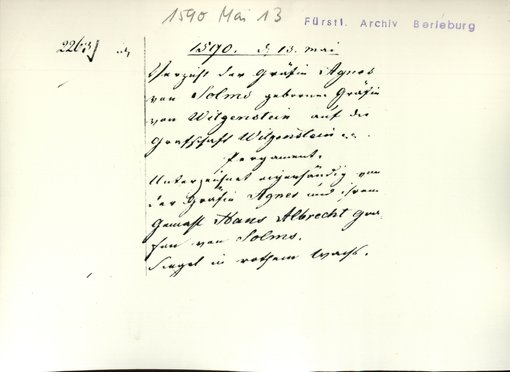 1590 Mai 13
Fürstl. Archiv Berleburg
1590. d. 13. Mai
Verzicht der Gräfin Agnes
von Solms geborene Gräfin
von Witgenstein auf die
Grafschaft Witgenstein
Pergament.
Unterzeichnet eigenhändig von
der Gräfin Agnes und ihrem
Gemahl Hans Albrecht Gra-
fen von Solms.
Siegel in rothem Wachs.